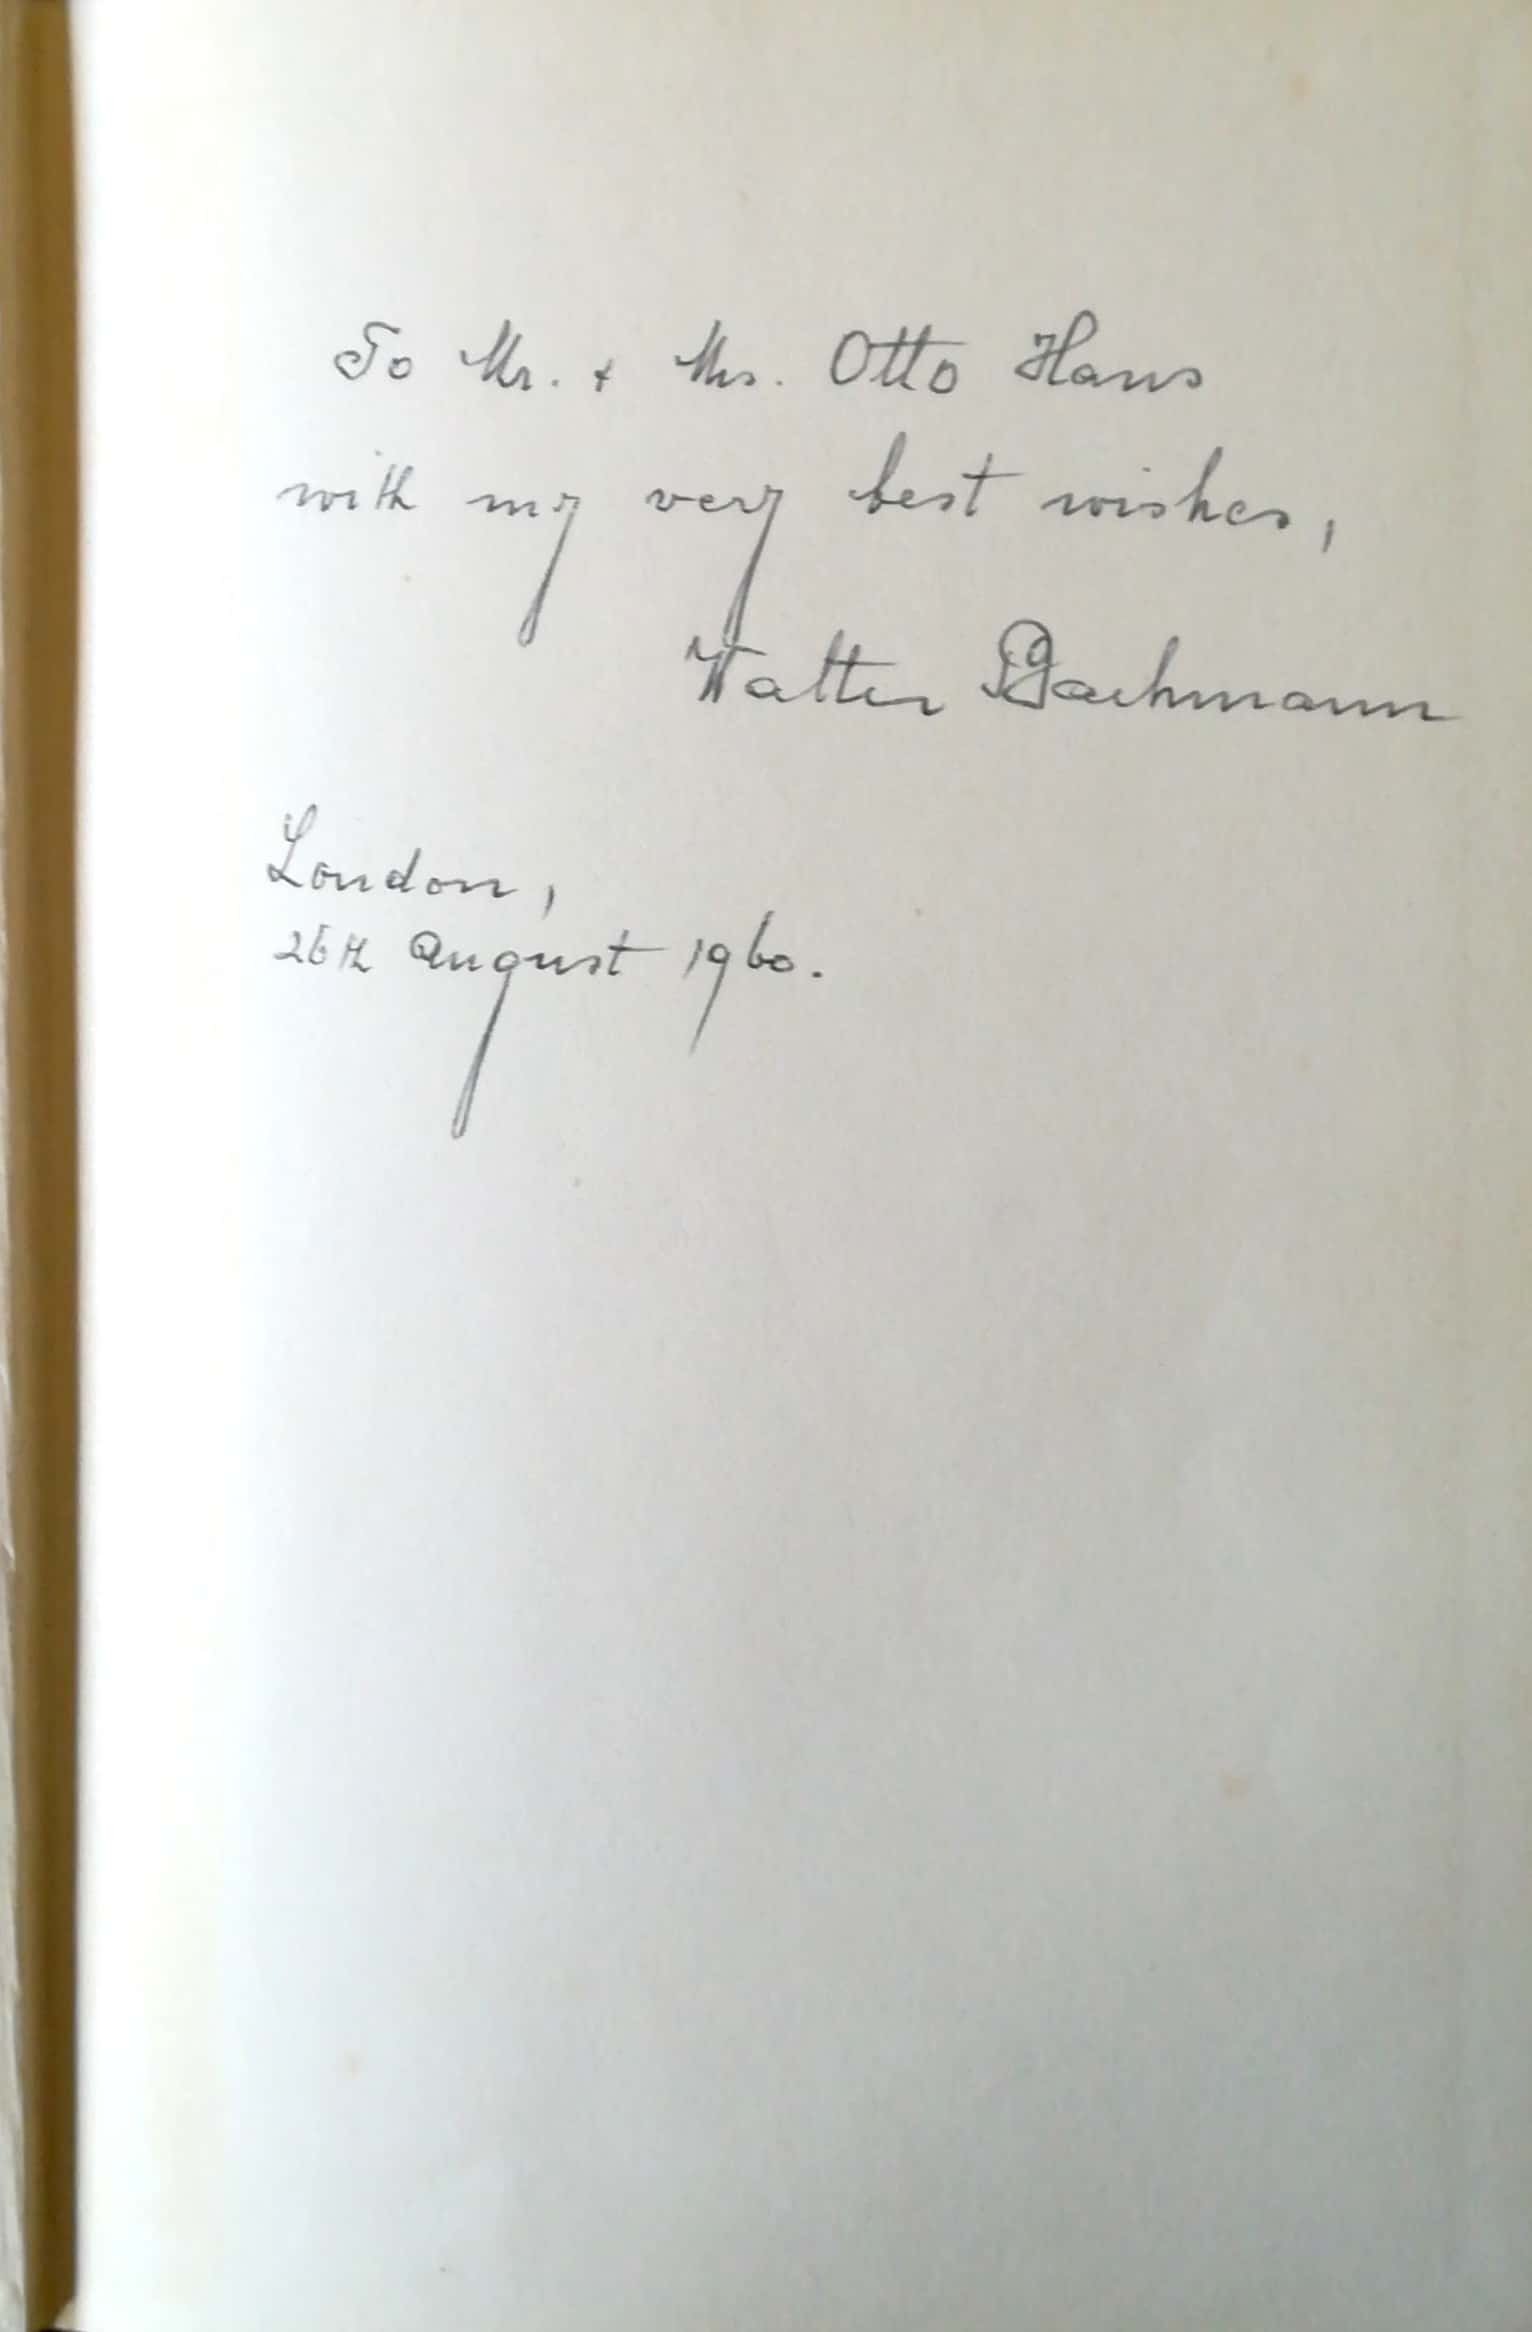 To Mr. + Mrs. Otto Haus
with my very best wishes,
Walter Bachmann
London,
26th August 1960.